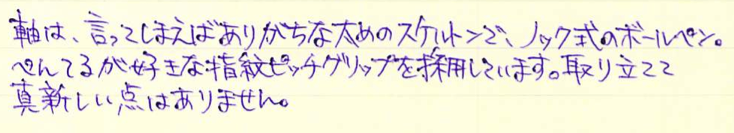 軸は、言ってしまえばありがちな太めのスケルトンで、ノック式のボールペン。
ぺんてるが好きな指紋ピッチグリップを採用しています。取り立てて
真新しい点はありません。